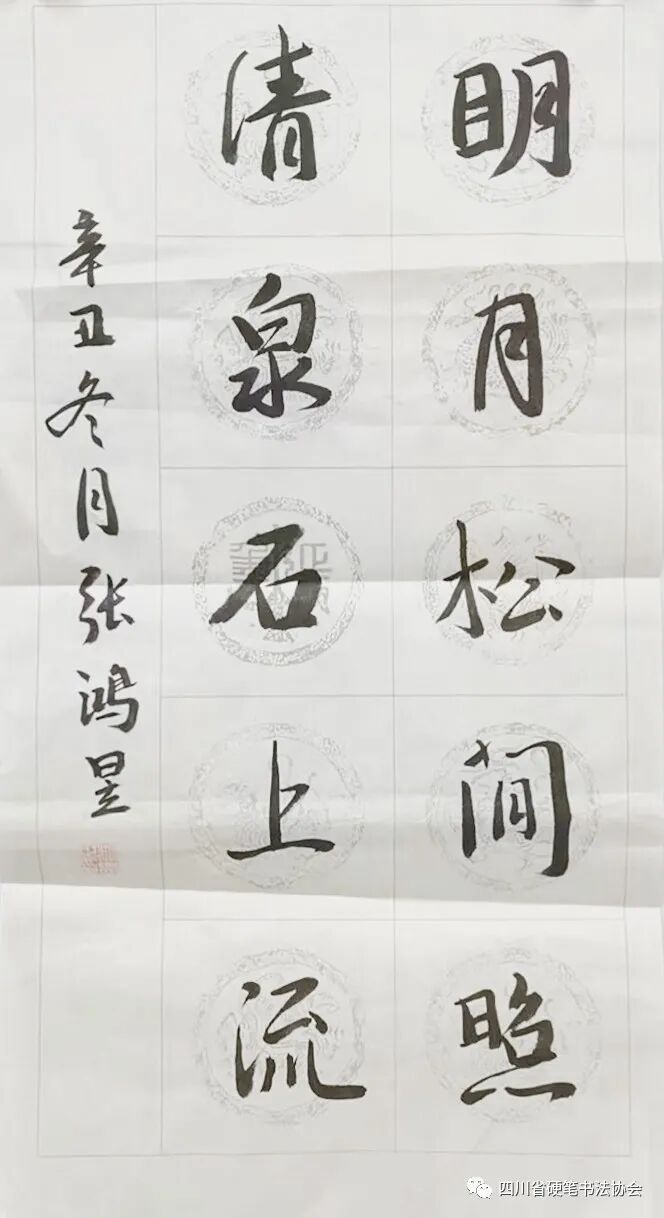 明月松间照
清泉石上流
辛丑冬月张鸿昱
四川省硬笔书法协会